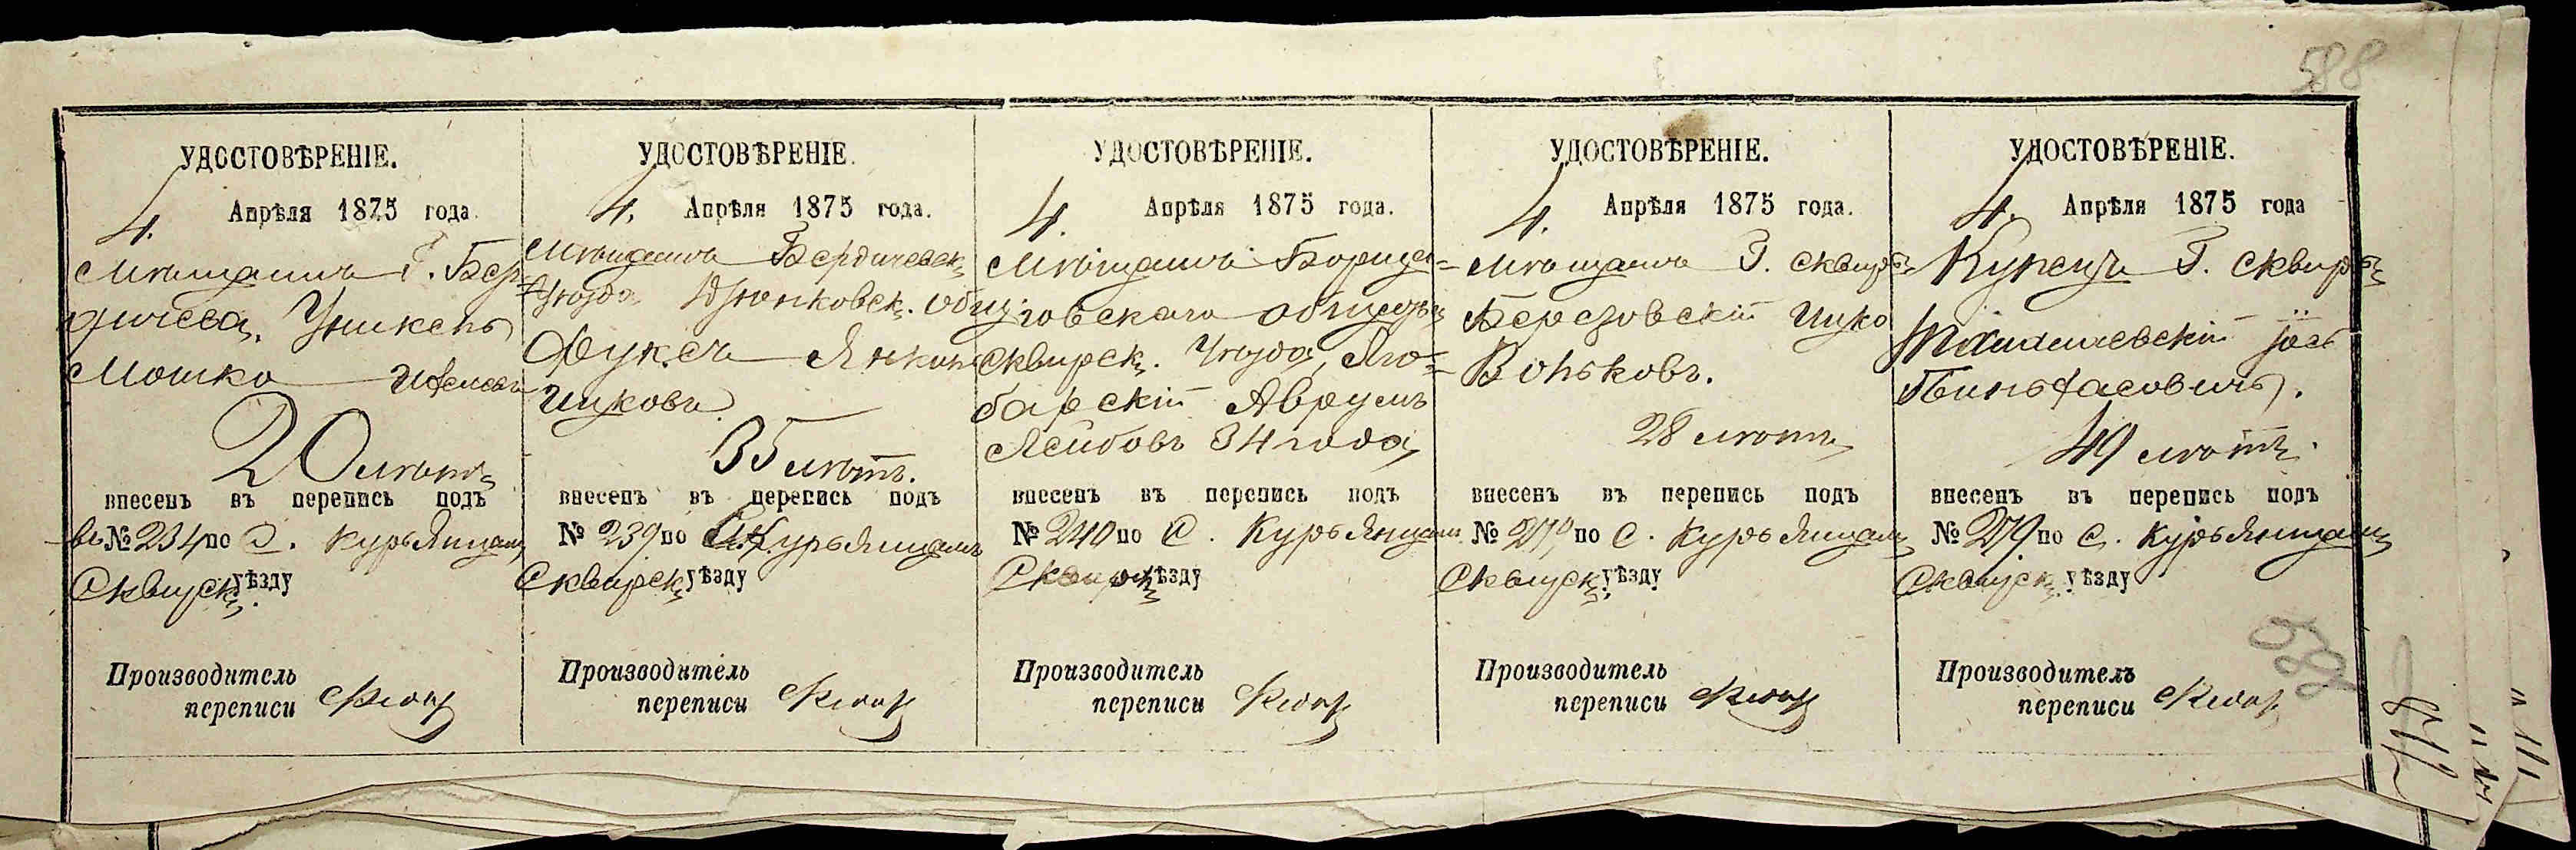 588
УДОСТОВѢРЕНІЕ.
4. Апрѣля 1875 года.
Мѣщанинъ Г. Бер-
дичева, Уникель
Мошко
20 лѣтъ
внесенъ въ перепись подъ
№ 234 по С. Курьянцамъ
Сквирск. уѣзду
Производитель
переписи
УДОСТОВѢРЕНІЕ.
4. Апрѣля 1875 года.
Мѣщанинъ Бердичевск.
Уѣзда Дзюнковск. общ.
Фуксъ Янкель
Ицковъ
35 лѣтъ.
внесенъ въ перепись подъ
№ 239 по С. Курьянцамъ
Сквирск. уѣзду
Производитель
переписи
УДОСТОВѢРЕНІЕ.
4. Апрѣля 1875 года.
Мѣщанинъ Борща-
говскаго общества
Сквирск. Уѣзда, Яго-
барскій Аврумъ
Лейбовъ 34 года
внесенъ въ перепись подъ
№ 240 по С. Курьянцамъ
Сквирск. уѣзду
Производитель
переписи
УДОСТОВѢРЕНІЕ.
4. Апрѣля 1875 года.
Мѣщанинъ Г. Сквиры
Березовскій Ицко
Вольковъ.
28 лѣтъ
внесенъ въ перепись подъ
№ по С. Курьянцамъ
Сквирск. уѣзду
Производитель
переписи
УДОСТОВѢРЕНІЕ.
4. Апрѣля 1875 года
Купецъ Г. Сквиры
Іось
Пиньхасовичъ.
49 лѣтъ.
внесенъ въ перепись подъ
№ 279 по С. Курьянцамъ
Сквирск. уѣзду
Производитель
переписи
588